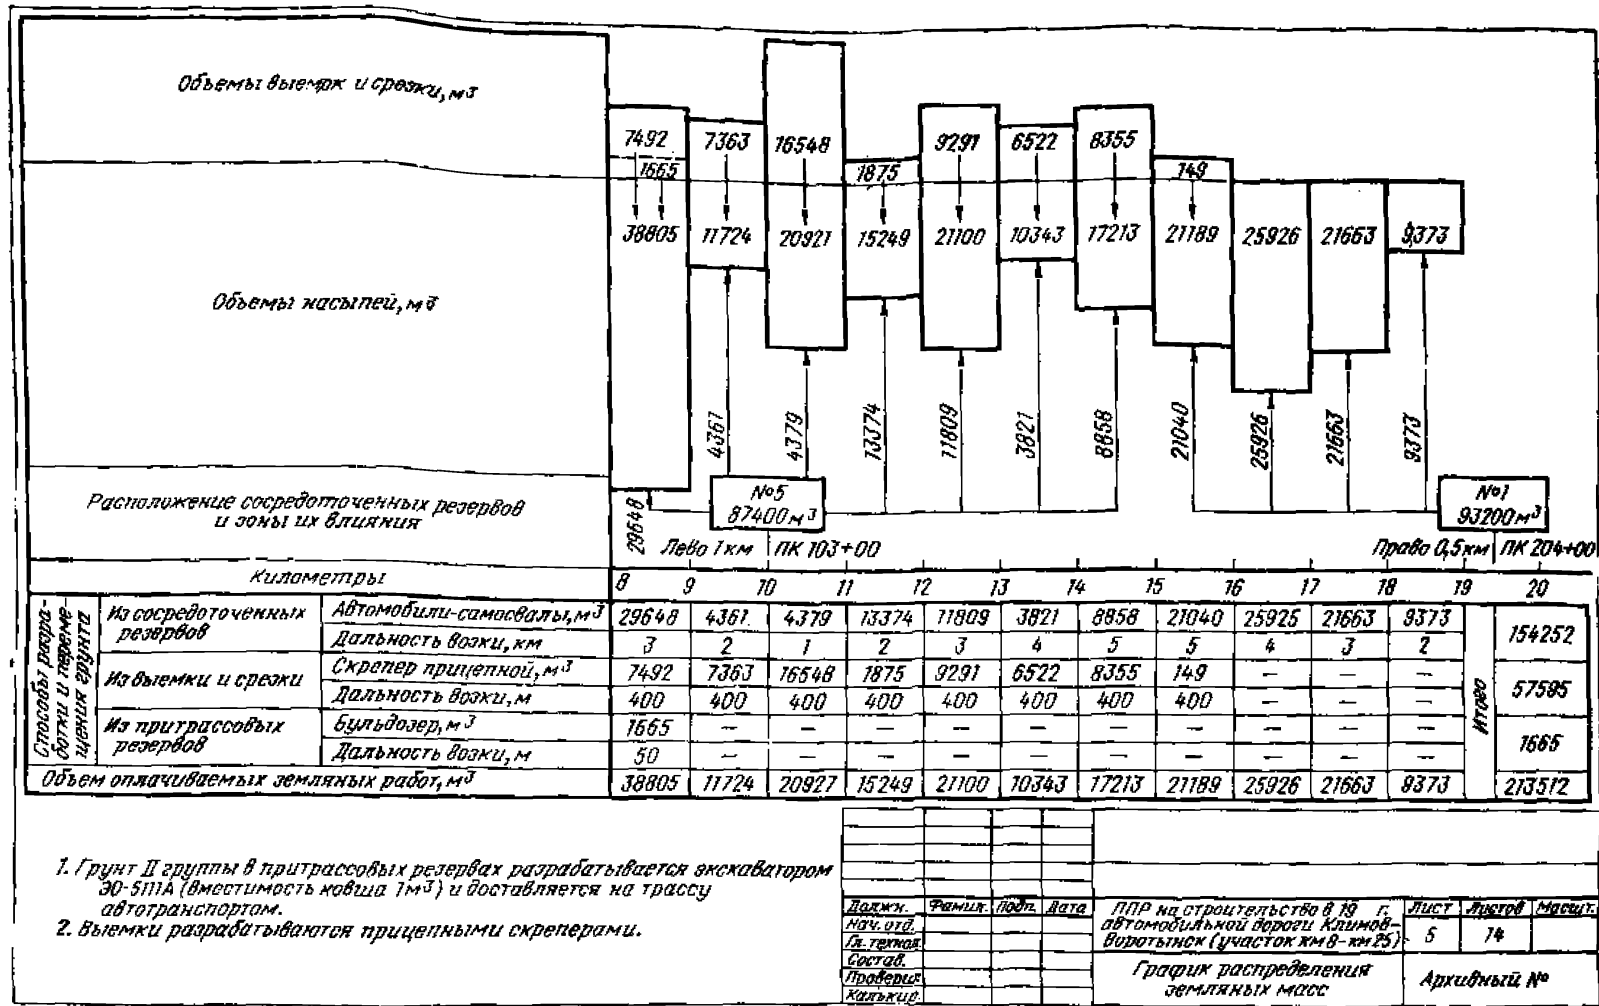 Объемы выемок и срезки, м³
7492 7363 16548 9291 6522 8355
1665 1875 149
38805 11724 20921 15249 21100 10343 17213 21189 25926 21663 9373
Объемы насыпей, м³
4361 4379 13374 11809 3821 8858 21040 25926 21663 9373
Расположение сосредоточенных резервов
и зоны их влияния
29648
№5
87400 м³
№1
93200 м³
Лево 1 км ПК 103+00
Право 0,5 км ПК 204+00
Километры 8 9 10 11 12 13 14 15 16 17 18 19 20
Способы разра-
ботки и переме-
щения грунта
Из сосредоточенных
резервов
Автомобили-самосвалы, м³ 29648 4361 4379 13374 11809 3821 8858 21040 25925 21663 9373
Дальность возки, км 3 2 1 2 3 4 5 5 4 3 2
154252
Из выемки и срезки
Скрепер прицепной, м³ 7492 7363 16548 1875 9291 6522 8355 149 – – –
Дальность возки, м 400 400 400 400 400 400 400 400 – – –
57595
Из притрассовых
резервов
Бульдозер, м³ 1665 – – – – – – – – – –
Дальность возки, м 50 – – – – – – – – – –
1665
Итого
Объем оплачиваемых земляных работ, м³ 38805 11724 20927 15249 21100 10343 17213 21189 25926 21663 9373 213512
1. Грунт II группы в притрассовых резервах разрабатывается экскаватором
ЭО-5111А (вместимость ковша 1м³) и доставляется на трассу
автотранспортом.
2. Выемки разрабатываются прицепными скреперами.
Должн. Фамил. Подп. Дата
Нач. отд.
Гл. технол.
Состав.
Проверил
Калькир.
ППР на строительство в 19 г.
автомобильной дороги Климов-
Воротынск (участок км 8-км 25)
Лист Листов Масшт.
5 14
График распределения
земляных масс
Архивный №